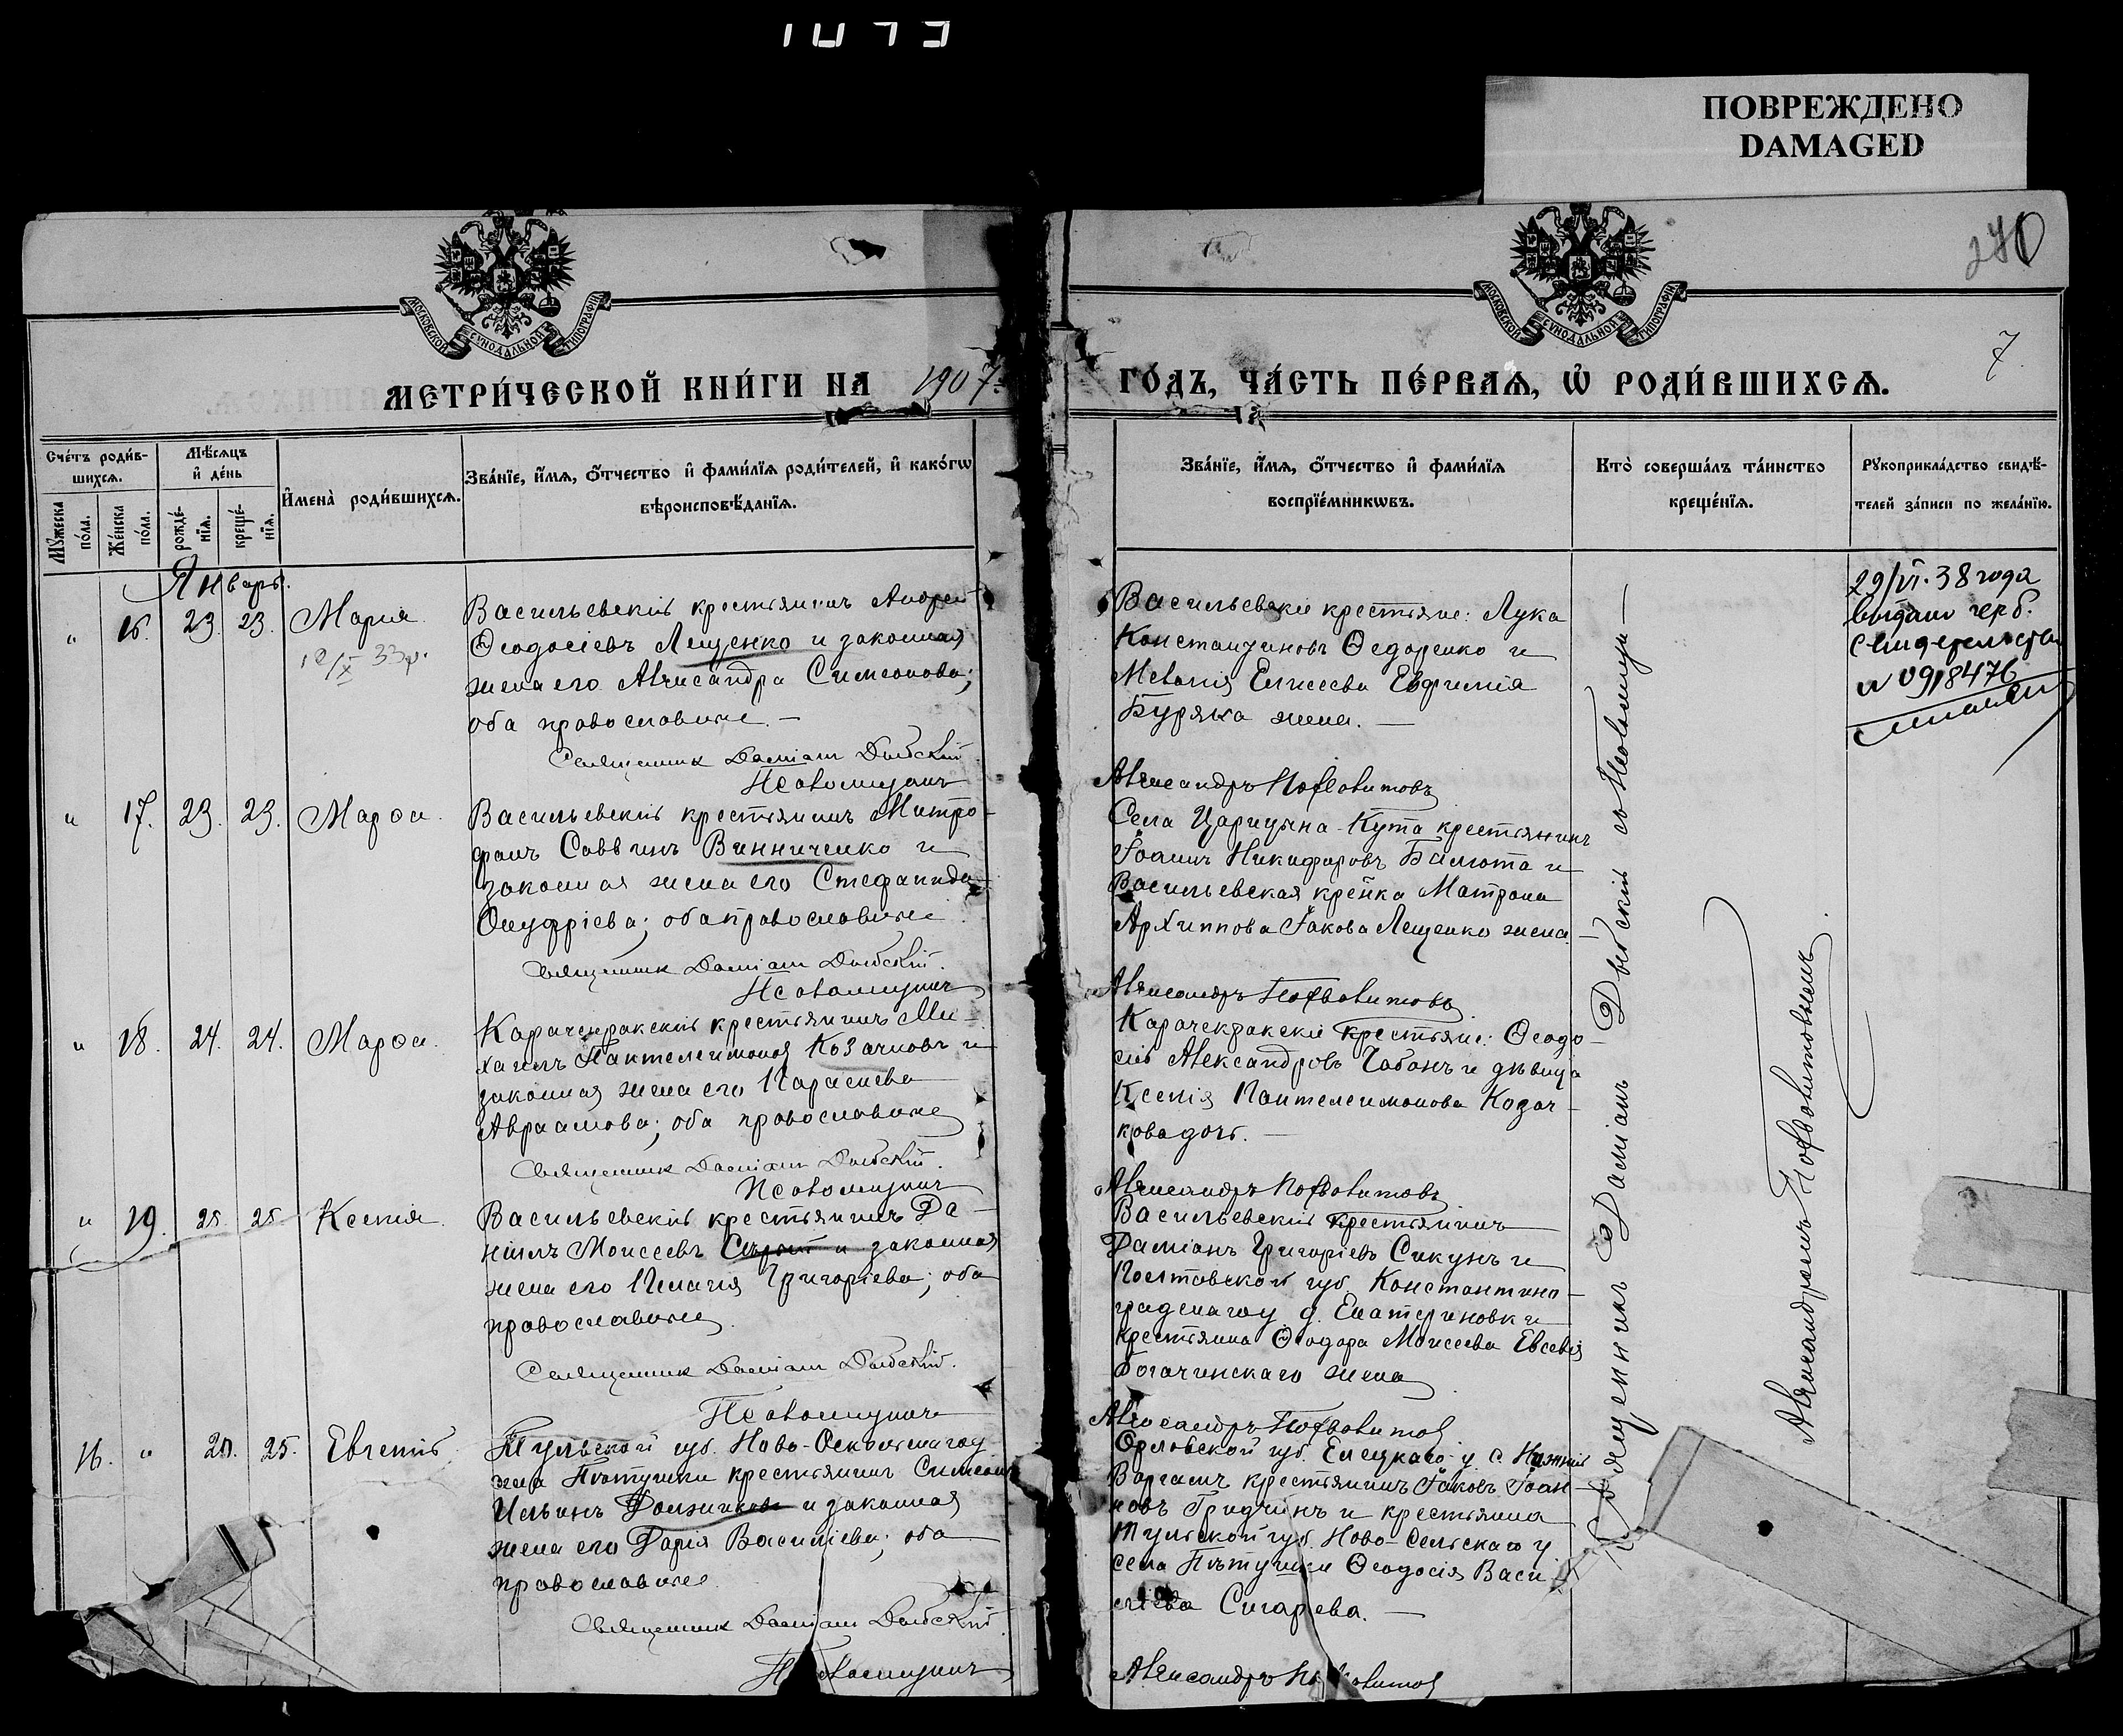 1073
ПОВРЕЖДЕНО
DAMAGED
270
7.
МОСКОВСКОЙ СѴНОДАЛЬНОЙ ТИПОГРАФІИ
МОСКОВСКОЙ СѴНОДАЛЬНОЙ ТИПОГРАФІИ
МЕТРИ́ЧЕСКОЙ КНИ́ГИ НА 1907
ГО́ДЪ, ЧА́СТЬ ПЕ́РВАѦ, Ѡ҆ РОДИ́ВШИХСѦ.
Сче́тъ роди́в-
шихсѧ.
Мѣ́сѧцъ
и҆ де́нь
Мꙋ́жеска
по́ла.
Же́нска
по́ла.
рожде́-
нїѧ.
креще́-
нїѧ.
И҆мена̀ роди́вшихсѧ.
Зва́нїе, и҆́мѧ, ѻ҆́тчество и҆ фами́лїѧ роди́телей, и҆ како́гѡ
вѣроисповѣ́данїѧ.
Зва́нїе, и҆́мѧ, ѻ҆́тчество и҆ фами́лїѧ
воспрїе́мникѡвъ.
Кто̀ соверша́лъ та́инство
креще́нїѧ.
Рꙋкоприкла́дство свидѣ́-
телей за́писи по жела́нїю.
Январь.
" 16. 23. 23. Мария
12/X 33г.
Васильевскій крестьянинъ Андрей
Ѳеодосіевъ Лещенко и законная
жена его Александра Симеонова;
оба православные. —
Священникъ Даміанъ Дыбскій
Псаломщикъ
Васильевскіе крестьяне: Лука
Константиновъ Ѳедоренко и
Меланія Елисеева Евфимія
Буряка жена. —
Александръ
29/VI. 38 года
выдано
свидетельство
№ 0918476
" 17. 23. 23. Марѳа.
Васильевскій крестьянинъ Митро-
фанъ Саввинъ Винниченко и
законная жена его Стефанида
Онуфріева; оба православные
Священникъ Даміанъ Дыбскій.
Псаломщикъ
Села Царицына-Кута крестьянинъ
Іоаннъ Никифоровъ Балюта и
Васильевская кр-ка Матрона
Архиппова Іакова Лещенко жена. —
Александръ
" 18. 24. 24. Марѳа.
Карачекракскій крестьянинъ Ми-
хаилъ Пантелеимоновъ Козачковъ и
законная жена его Параскева
Авраамова; оба православные
Священникъ Даміанъ Дыбскій.
Псаломщикъ
Карачекракскіе крестьяне: Ѳеодо-
сій Александровъ Чабанъ и дѣвица
Ксенія Пантелеимонова Козач-
кова дочь. —
Александръ
" 19. 25. 25. Ксенія.
Васильевскій крестьянинъ Да-
ніилъ Моисеевъ и законная
жена его Пелагія Григоріева; оба
православные.
Священникъ Даміанъ Дыбскій.
Псаломщикъ
Васильевскій крестьянинъ
Даміанъ Григоріевъ Сикунъ и
Полтавской губ. Константино-
градскаго у. д. Екатериновки
крестьянина Ѳеодора Моисеева Евсевія
Богачинскаго жена
Александръ
16. " 20. 25. Евгеній
Тульской губ. Ново-
села Пѣтушки крестьянинъ Симеонъ
Ильинъ и законная
жена его Дарія Василіева; оба
православные.
Священникъ Даміанъ Дыбскій
Псаломщикъ
Орловской губ. Елецкаго у. с. Нижній
Воргаилъ крестьянинъ Іаковъ Іоан-
новъ Гридчинъ и крестьянка
Тульской губ. Ново-Сельскаго у
села Пѣтушки Ѳеодосія Васи-
ліева Сигарева. —
Александръ
Священникъ Даміанъ Дыбскій со Псаломщи—
Александромъ